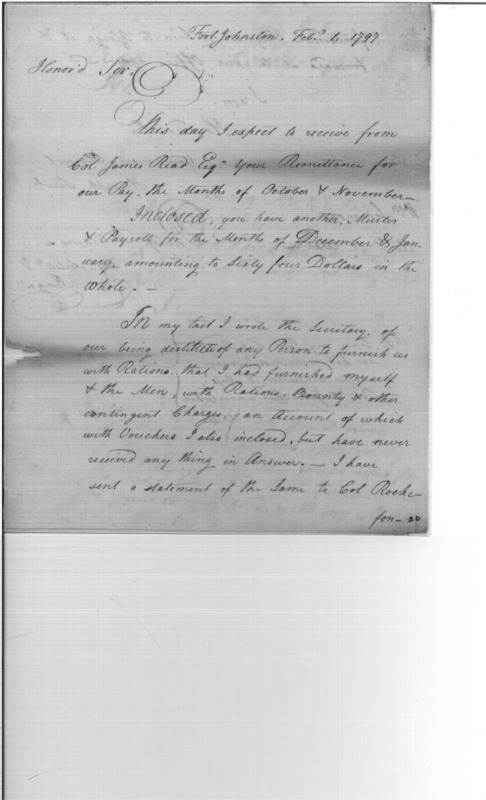 Fort Johnston. Feb.y 1, 1797
Honor'd Sir.
This day I expect to receive from
Col. James Read Esqr. Your Remittance for
our Pay, the Months of October & November—
Inclosed, you have another, Muster
& Payroll for the Months of December & Jan-
uary, amounting to Sixty four Dollars in the
Whole. —
In my last I wrote the Secretary, of
our being destitute of any Person to furnish us
with Rations, that I had furnished myself
& the Men, with Rations, Bounty & other
contingent Charges, an Account of which
with Vouchers I also inclosed, but have never
received any thing in Answer. — I have
sent a statement of the Same to Col Roche-
fon-